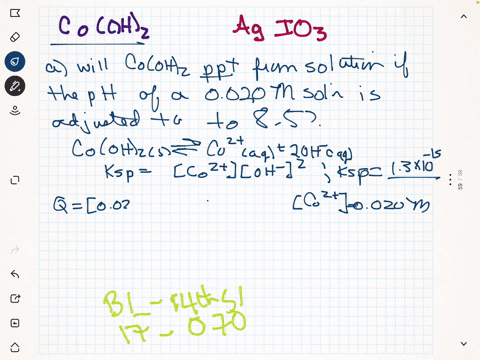 Co(OH)₂ Ag IO₃
a) will Co(OH)₂ ppt from solution if
the pH of a 0.020 M soln is
adjusted to to 8.5?
Co(OH)₂(s) ⇌ Co²⁺(aq) + 2OH⁻(aq)
Ksp = [Co²⁺][OH⁻]² ; Ksp = 1.3×10⁻¹⁵
Q = [0.02 [Co²⁺]=0.020 M
BL - 14th
17 - 070